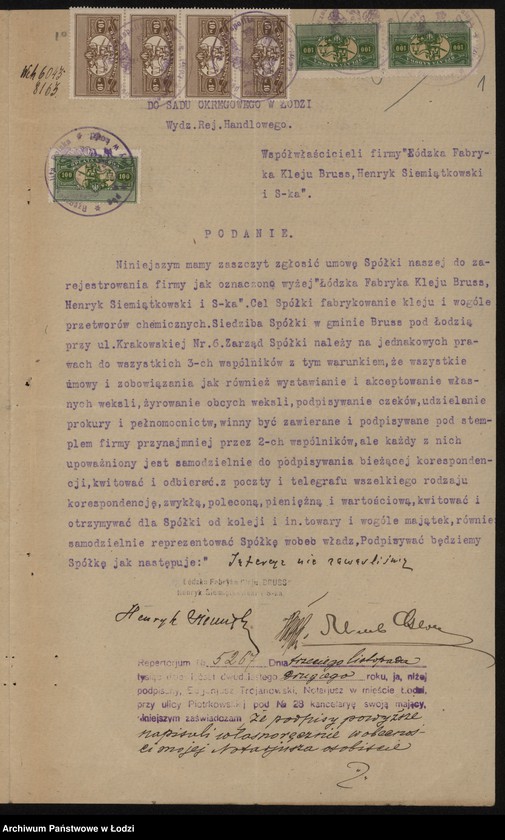 1
DO SADU OKRĘGOWEGO W ŁODZI
Wydz.Rej.Handlowego.
Współwłaścicieli firmy"Łódzka Fabry-
ka Kleju Bruss,Henryk Siemiątkowski
i S-ka".
100
100
100
PODANIE.
Niniejszym mamy zaszczyt zgłosić umowę Spółki naszej do za-
rejestrowania firmy jak oznaczono wyżej"Łódzka Fabryka Kleju Bruss,
Henryk Siemiątkowski i S-ka".Cel Spółki fabrykowanie kleju i wogóle
przetworów chemicznych.Siedziba Spółki w gminie Bruss pod Łodzią
przy ul.Krakowskiej Nr.6.Zarząd Spółki należy na jednakowych pra-
wach do wszystkich 3-ch wspólników z tym warunkiem,że wszystkie
umowy i zobowiązania jak również wystawianie i akceptowanie włas-
nych weksli,żyrowanie obcych weksli,podpisywanie czeków,udzielanie
prokury i pełnomocnictw,winny być zawierane i podpisywane pod stem-
plem firmy przynajmniej przez 2-ch wspólników,ale każdy z nich
upoważniony jest samodzielnie do podpisywania bieżącej koresponden-
cji,kwitować i odbierać.z poczty i telegrafu wszelkiego rodzaju
korespondencję,zwykłą,poleconą,pieniężną i wartościową,kwitować i
otrzymywać dla Spółki od koleji i in.towary i wogóle majątek,równie
samodzielnie reprezentować Spółkę wobeb władz,Podpisywać będziemy
Spółkę jak następuje:" Intercyz nie zawarliśmy
Łódzka Fabryka Kleju BRUSS
Henryk Siemiątkowski i S-ka.
Henryk Siemiątk
Repertorjum № 5267 Dnia trzeciego listopada
tysiąc dziewięćset dwudziestego drugiego roku, ja, niżej
podpisany, Eugenjusz Trojanowski, Notarjusz w mieście Łodzi,
przy ulicy Piotrkowskiej pod № 28 kancelarję swoją mający,
niniejszym zaświadczam że podpisy powyższe
napisali własnoręcznie w obecnoś-
ci mojej Notarjusza osobiście
Archiwum Państwowe w Łodzi